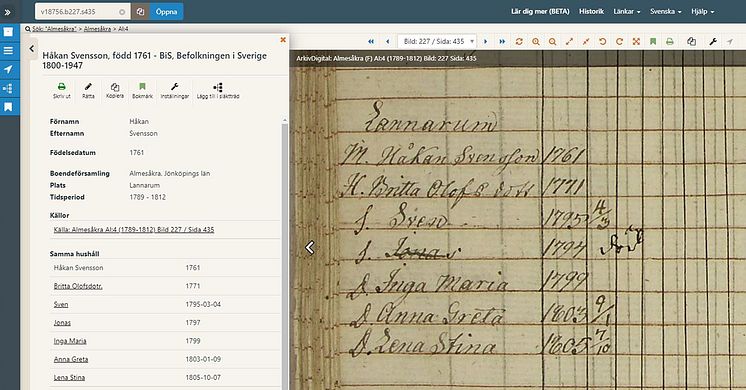 v18756.b227.s435
Öppna
Lär dig mer (BETA)
Historik
Länkar
Svenska
Hjälp
Sök: "Almesåkra" > Almesåkra > AI:4
Håkan Svensson, född 1761 - BiS, Befolkningen i Sverige
1800-1947
Skriv ut
Rätta
Kopiera
Bokmärk
Inställningar
Lägg till i släktträd
Förnamn Håkan
Efternamn Svensson
Födelsedatum 1761
Boendeförsamling Almesåkra, Jönköpings län
Plats Lannarum
Tidsperiod 1789 - 1812
Källor
Källa: Almesåkra AI:4 (1789-1812) Bild 227 / Sida 435
Samma hushåll
Håkan Svensson 1761
Britta Olofsdotr. 1771
Sven 1795-03-04
Jonas 1797
Inga Maria 1799
Anna Greta 1803-01-09
Lena Stina 1805-10-07
Bild: 227 / Sida: 435
ArkivDigital: Almesåkra (F) AI:4 (1789-1812) Bild: 227 Sida: 435
Lannarum
M. Håkan Svensson 1761
H. Britta Olofs dott 1771
s. Sven 1795 4/3
s. Jonas 1797 död
D. Inga Maria 1799
D. Anna Greta 1803 9/1
D. Lena Stina 1805 7/10